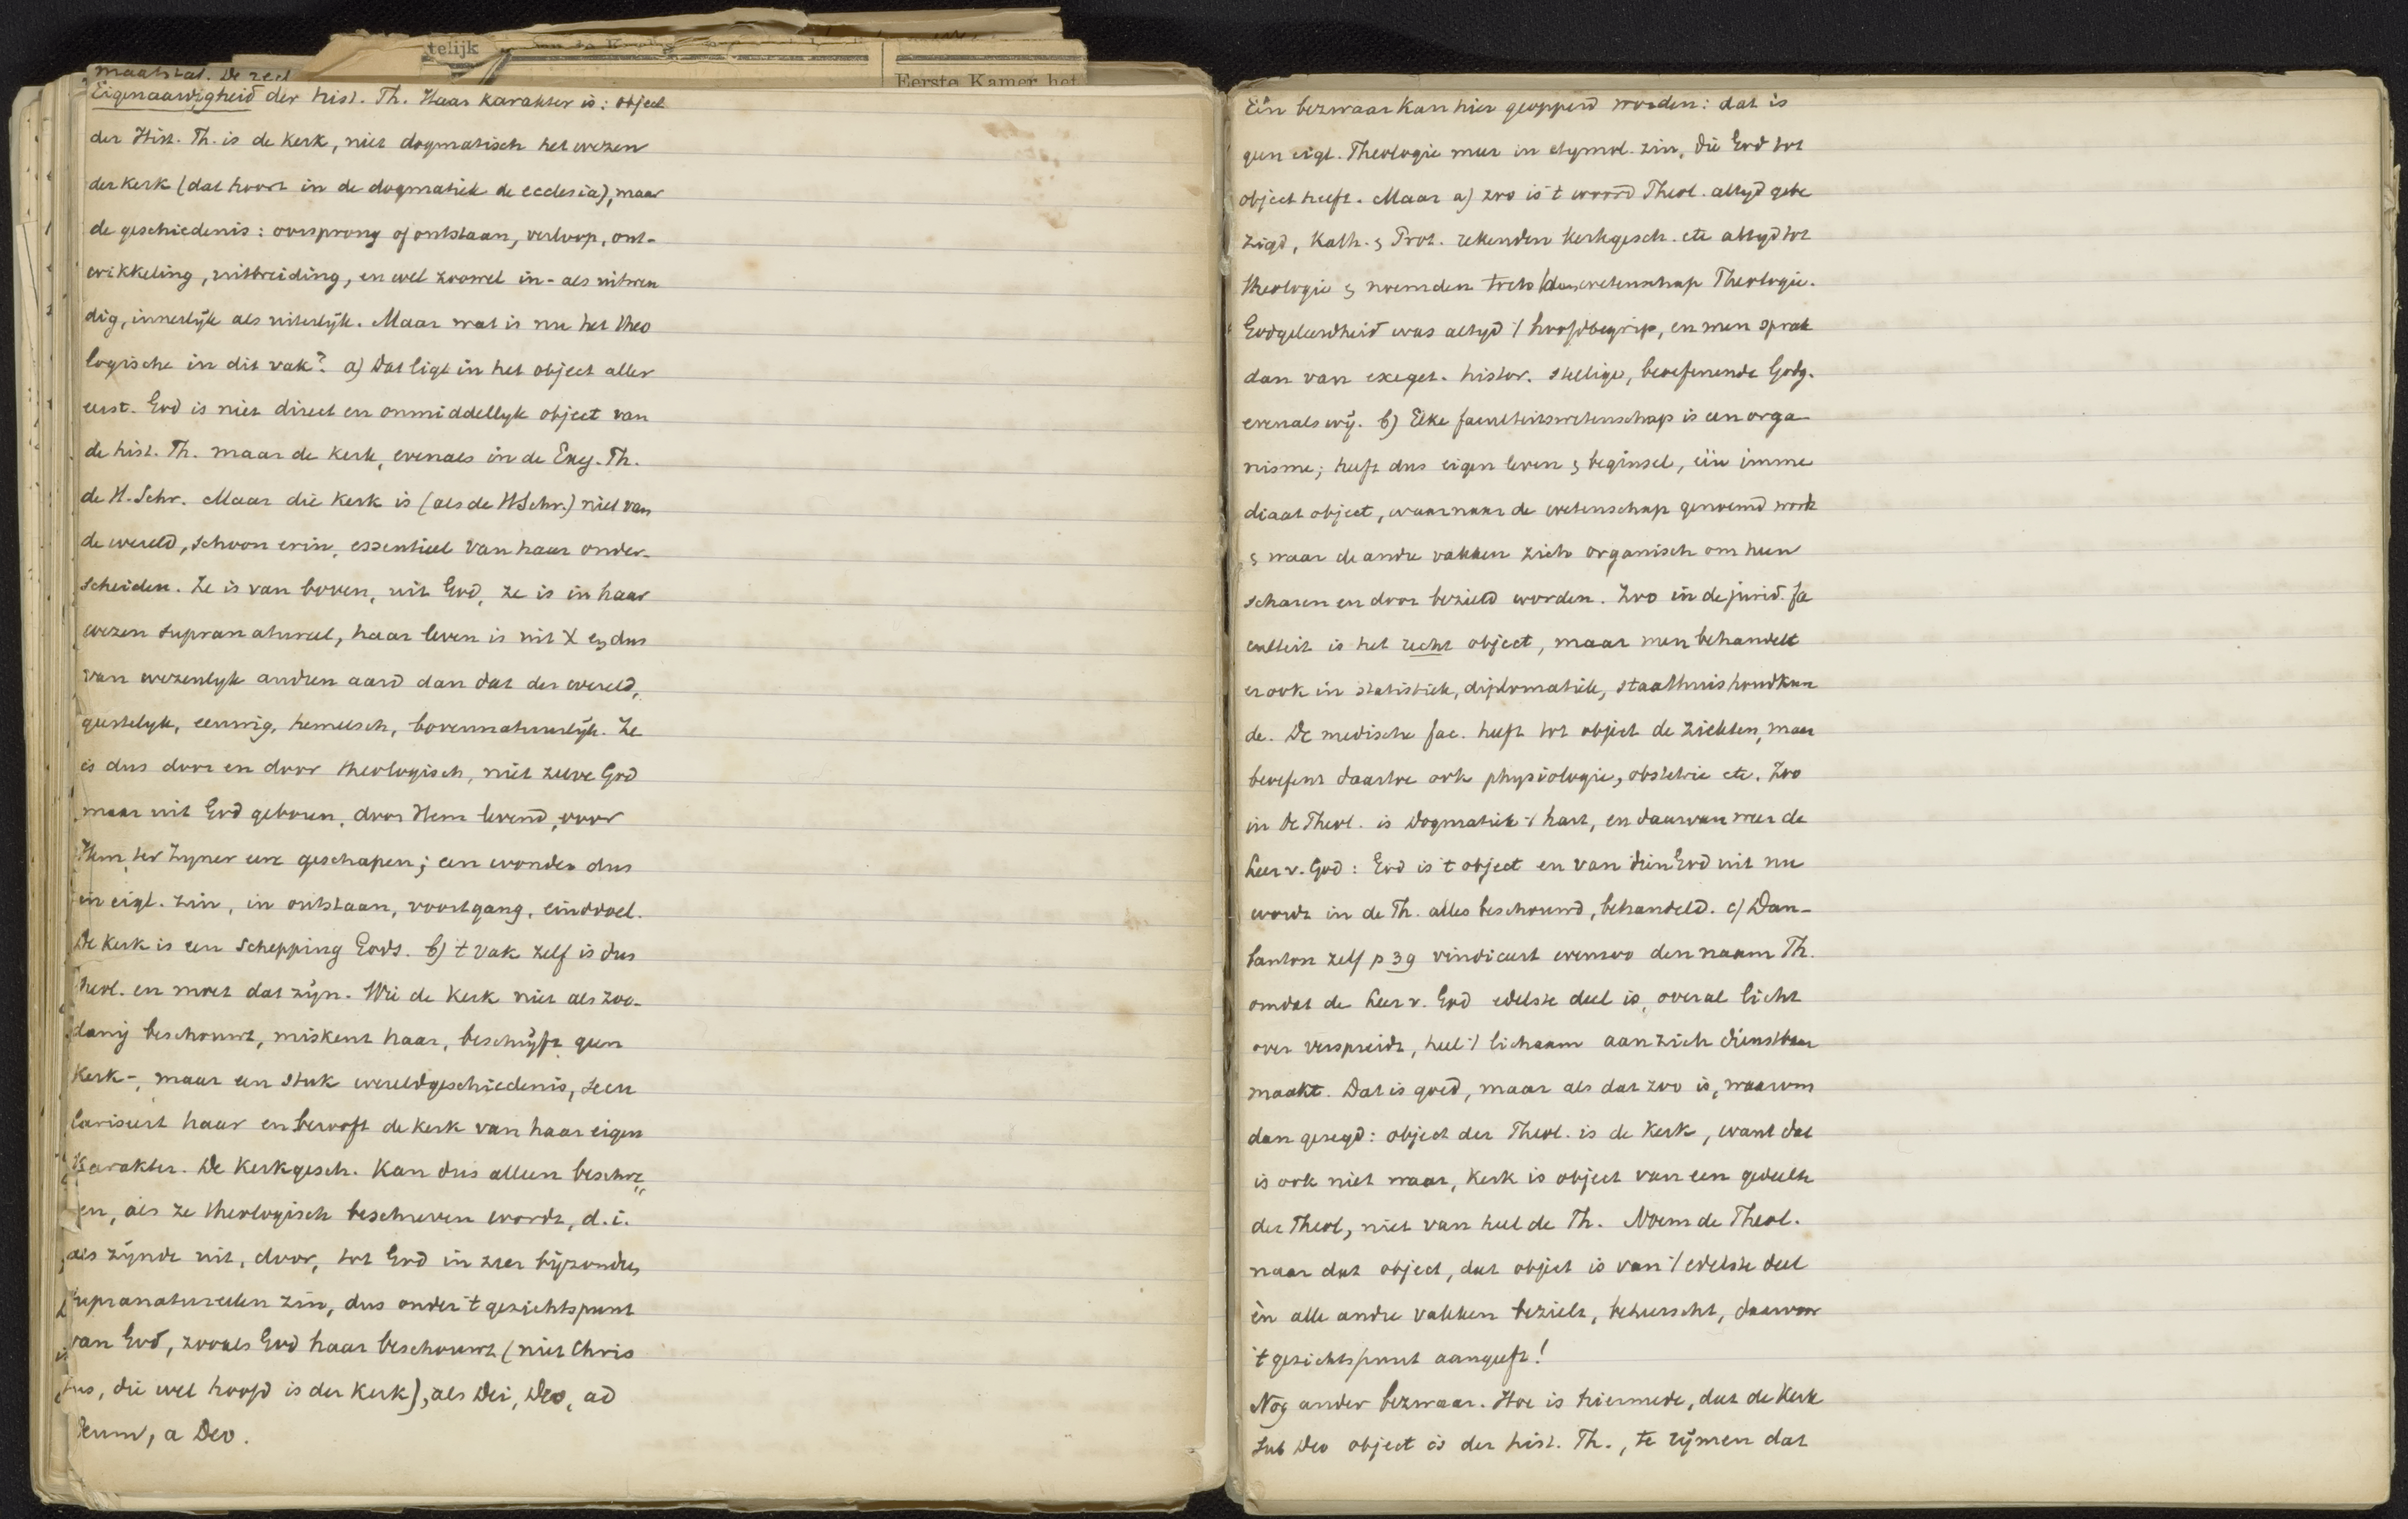 telijk
Eerste Kamer het
maatstaf. De reel
Eigenaardigheid der hist. Th. Haar karakter is: object
der Hist. Th. is de kerk, niet dogmatisch het wezen
der kerk (dat hoort in de dogmatiek de ecclesia), maar
de geschiedenis: oorsprong of ontstaan, verloop, ont-
wikkeling, uitbreiding, en wel zoowel in- als uitwen
dig, innerlijk als uiterlijk. Maar wat is nu het theo
logische in dit vak? a) Dat ligt in het object aller
eerst. God is niet direct en onmiddellyk object van
de hist. Th. maar de kerk, evenals in de Exeg. Th.
de H. Schr. Maar die kerk is (als de H Schr.) niet van
de wereld, schoon erin, essentieel van haar onder-
scheiden. Ze is van boven, uit God, ze is in haar
wezen supranatureel, haar leven is uit X en dus
van wezenlyk andren aard dan dat der wereld,
geestelyk, eeuwig, hemelsch, bovennatuurlijk. Ze
is dus door en door theologisch, niet zelve God
maar uit God geboren, door Hem levend, voor
Hem, ter Zyner eere geschapen; een wonder dus
in eigl. zin, in ontstaan, voortgang, einddoel.
De kerk is een schepping Gods. b) t vak zelf is dus
theol. en moet dat zijn. Wie de kerk niet als zoo-
danig beschouwt, miskent haar, beschrijft geen
kerk-, maar een stuk wereldgeschiedenis, secu
lariseert haar en berooft de kerk van haar eigen
karakter. De kerkgesch. kan dus alleen beschre
ven, als ze theologisch beschreven wordt, d.i.
als zijnde uit, door, tot God in zeer bijzondren
supranatureelen zin, dus onder 't gezichtspunt
van God, zooals God haar beschouwt (niet Chris
tus, die wel hoofd is der kerk), als Dei, Deo, ad
Deum, a Deo.
Eén bezwaar kan hier geopperd worden: dat is
geen eigl. Theologie meer in etymol. zin, die God tot
object heeft. Maar a) zoo is 't woord Theol. altyd gebe
zigd, Kath. & Prot. rekenden kerkgesch. etc altyd tot
theologie & noemden toch wetenschap Theologie.
Godgeleerdheid was altyd 't hoofdbegrip, en men sprak
dan van exeget. histor. stellige, beoefenende Godg.
evenals wij. b) Elke faculteitswetenschap is een orga-
nisme; heeft dus eigen leven & beginsel, één imme
diaat object, waarnaar de wetenschap genoemd wordt
& waar de andre vakken zich organisch om heen
scharen en door bezield worden. Zoo in de jurid. fa
culteit is het recht object, maar men behandelt
er ook in statistiek, diplomatiek, staathuishoudkun
de. De medische fac. heeft tot object de ziekten, maar
beoefent daartoe ook physiologie, obstetrie etc. Zoo
in de Theol. is Dogmatiek 't hart, en daarvan weer de
Leer v. God: God is 't object en van dien God uit nu
wordt in de Th. alles beschouwd, behandeld. c) Dau-
banton zelf p 39 vindiceert evenzoo den naam Th.
omdat de Leer v. God edelste deel is, overal licht
over verspreidt, heel 't lichaam aan zich dienstbaar
maakt. Dat is goed, maar als dat zoo is, waarom
dan gezegd: object der Theol. is de kerk, want dat
is ook niet waar, kerk is object van een gedeelte
der Theol, niet van heel de Th. Noem de Theol.
naar dat object, dat object is van 't edelste deel
èn alle andre vakken bezielt, beheerscht, daarvoor
't gezichtspunt aangeeft!
Nog ander bezwaar. Hoe is hiermede, dat de kerk
sub Deo object is der hist. Th., te rijmen dat